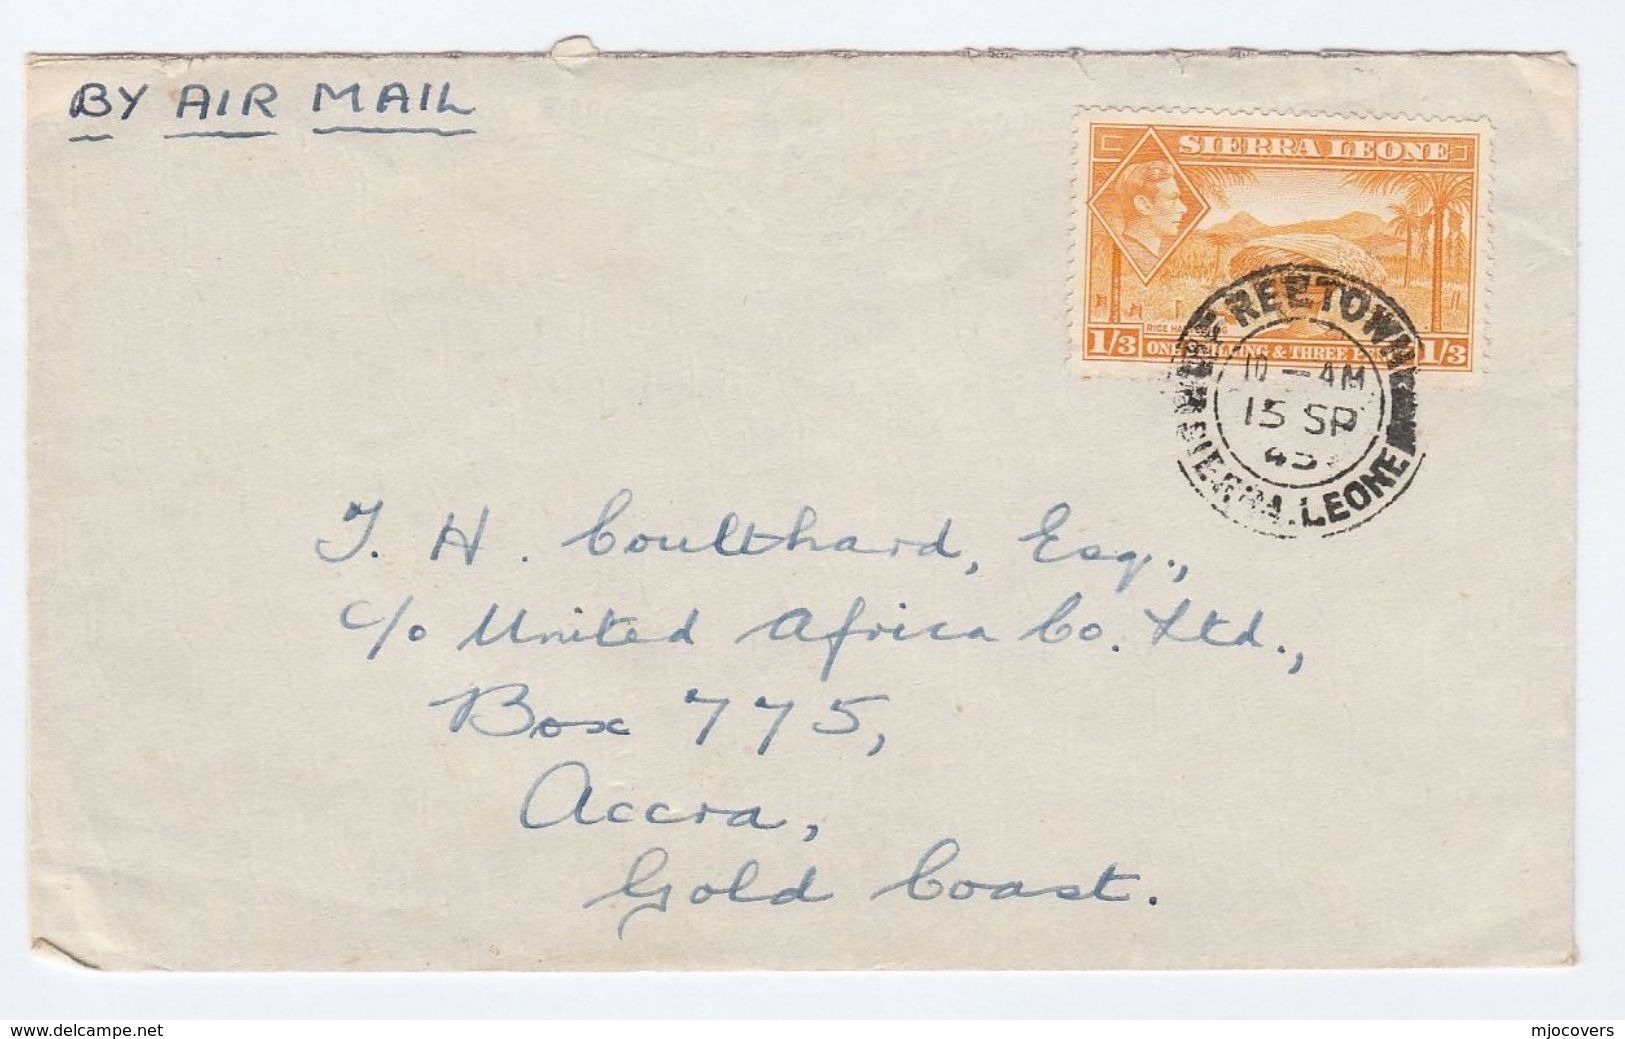 BY AIR MAIL
SIERRA LEONE
RICE HARVESTING
1/3 ONE SHILLING & THREE PENCE 1/3
FREETOWN
10 - AM
15 SP
45
SIERRA LEONE
J. H. Coulthard, Esq.,
c/o United Africa Co. Ltd.,
Box 775,
Accra,
Gold Coast.
www.delcampe.net
mjocovers